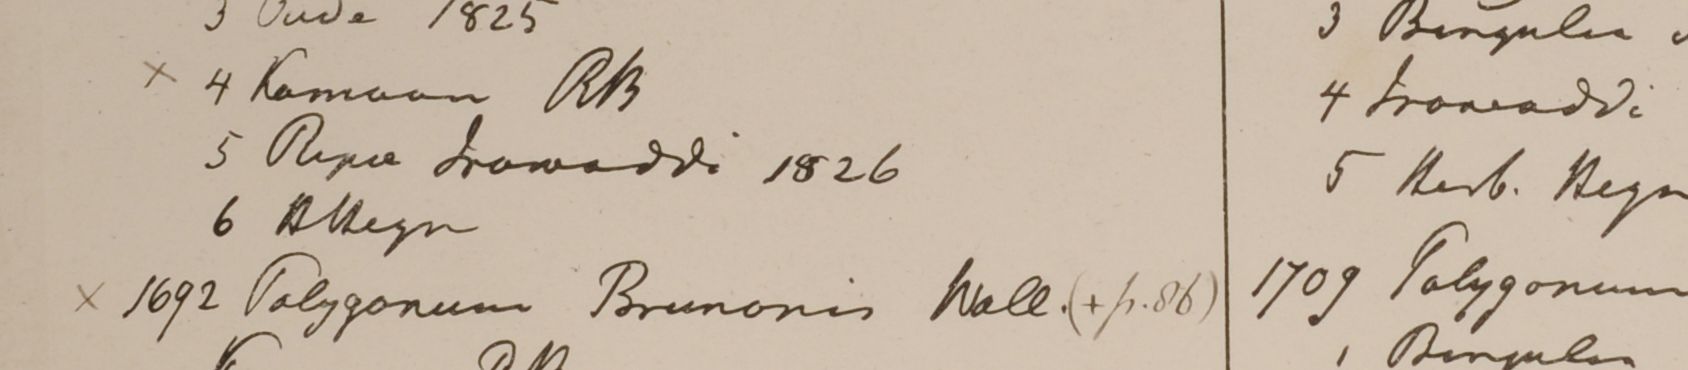 3 Oude 1825
× 4 Kamaon RB
5 Ripae Irawaddi 1826
6 HHeyn
× 1692 Polygonum Brunonis Wall. (+ p. 86)
3 Bengalea
4 Irawaddi
5 Herb. Heyn
1709 Polygonum
1 Bengalea